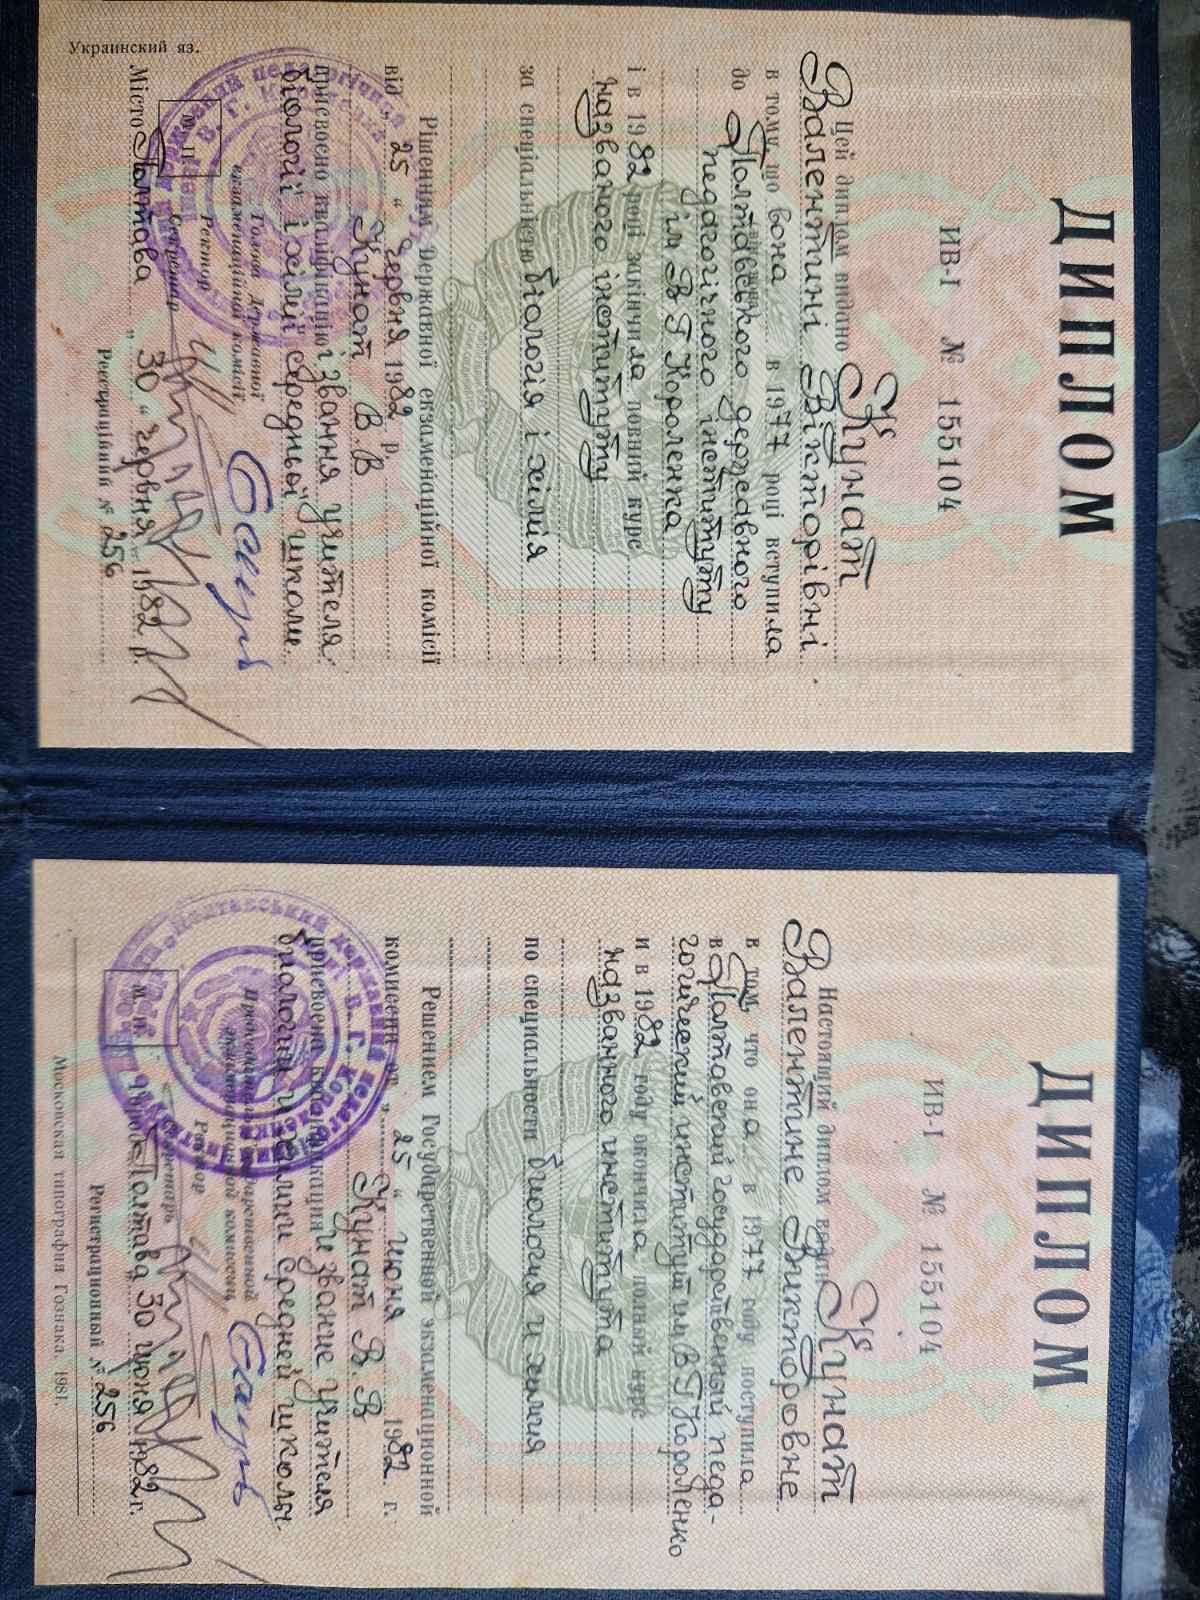 ДИПЛОМ
ИВ-I № 155104
Цей диплом видано Кунат
Валентині Вікторівні
в тому, що вона в 1977 році вступила
до Полтавського державного
педагогічного інституту
ім В Г Короленка
і в 1982 році закінчила повний курс
названого інституту
за спеціальністю біологія і хімія
Рішенням Державної екзаменаційної комісії
від „25“ червня 1982 р.
Кунат В. В
присвоєно кваліфікацію і звання учителя
біології і хімії середньої школи.
Голова Державної
екзаменаційної комісії
Ректор
Секретар
М. П.
Місто Полтава „30“ червня 1982 р.
Реєстраційний № 256
Украинский яз.
ДИПЛОМ
ИВ-I № 155104
Настоящий диплом выдан Кунат
Валентине Викторовне
в том, что она в 1977 году поступила
в Полтавский государственный педа-
гогический институт им В Г Короленко
и в 1982 году окончила полный курс
названного института
по специальности биология и химия
Решением Государственной экзаменационной
комиссии от „25“ июня 1982 г.
Кунат В. В
присвоена квалификация и звание учителя
биологии и химии средней школы.
Председатель Государственной
экзаменационной комиссии
Ректор
Секретарь
М. П.
Город Полтава 30 июня 1982 г.
Регистрационный № 256
Московская типография Гознака. 1981.